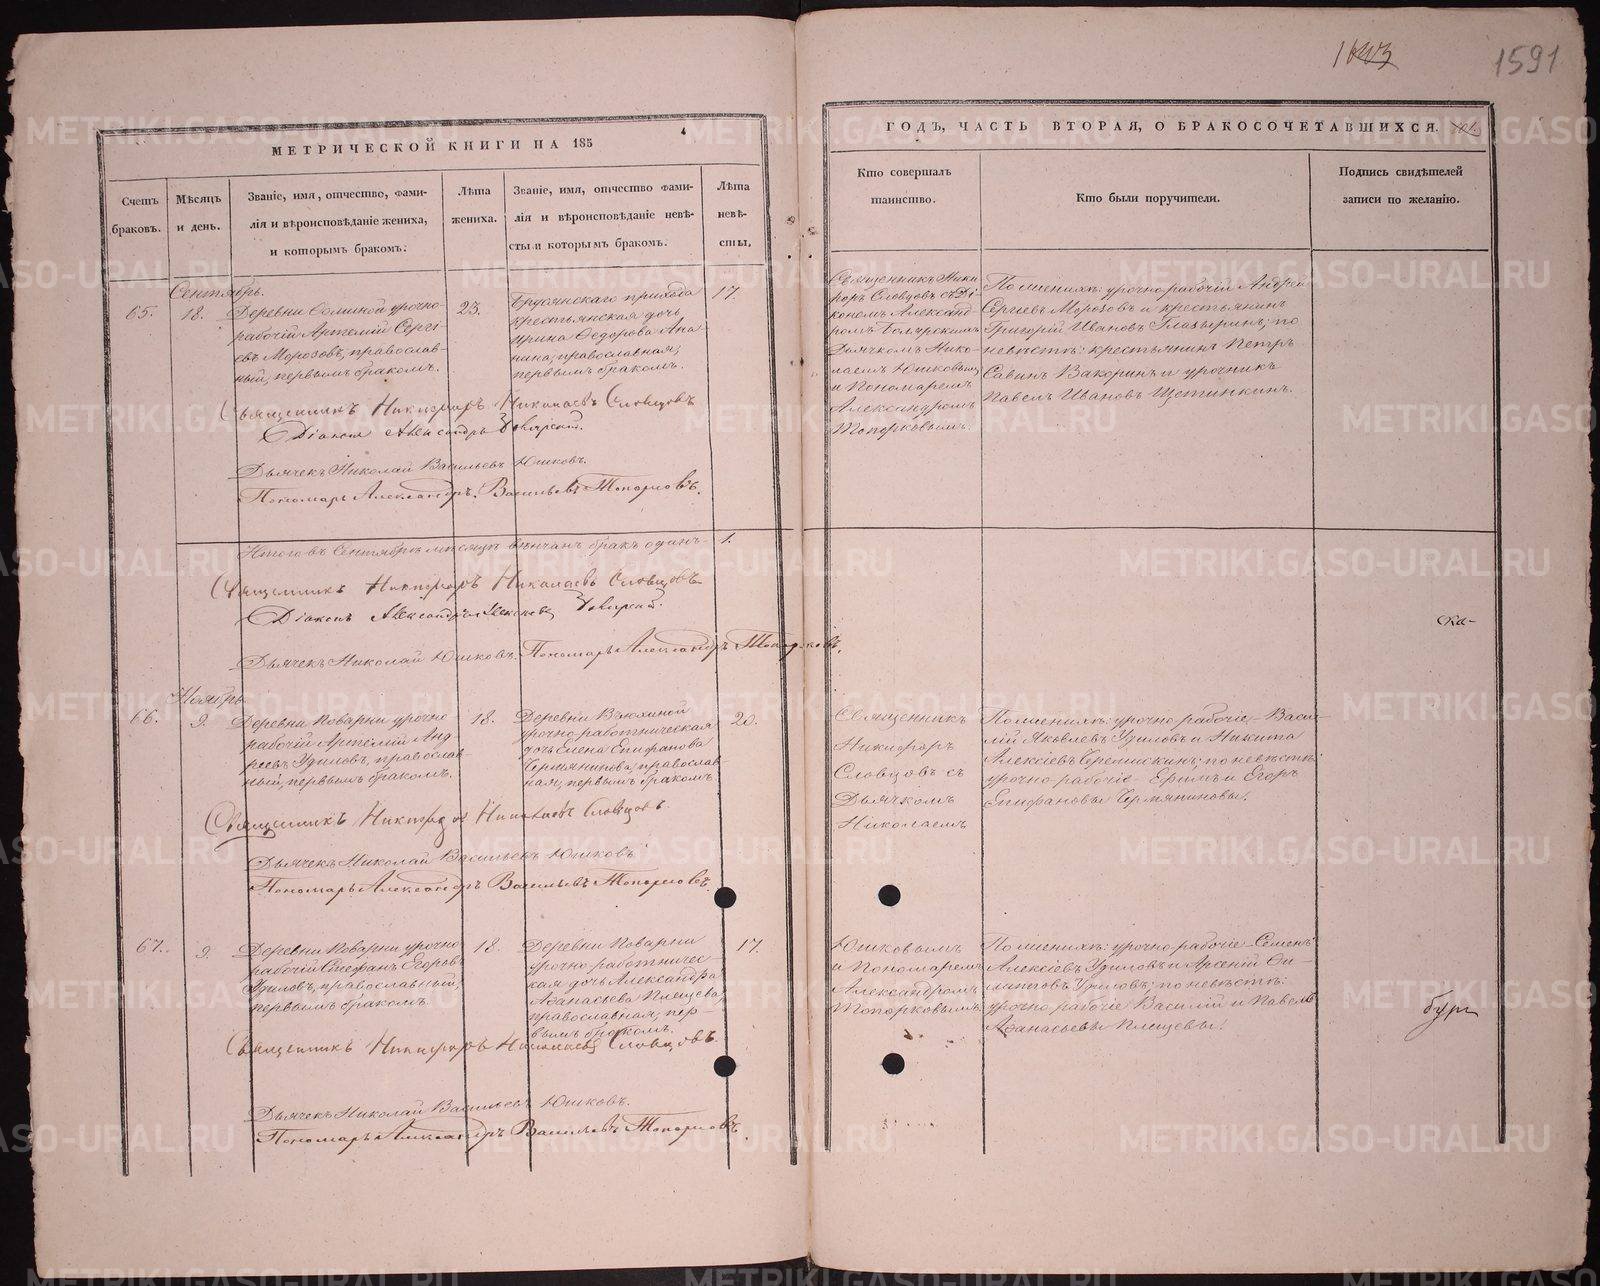 1591
МЕТРИЧЕСКОЙ КНИГИ НА 185
ГОДЪ, ЧАСТЬ ВТОРАЯ, О БРАКОСОЧЕТАВШИХСЯ.
Счетъ
браковъ.
Мѣсяцъ
и день.
Званіе, имя, отчество, фами-
лія и вѣроисповѣданіе жениха,
и которымъ бракомъ.
Лѣта
жениха.
Званіе, имя, отчество фами-
лія и вѣроисповѣданіе невѣ-
сты и которымъ бракомъ.
Лѣта
невѣ-
сты.
Кто совершалъ
таинство.
Кто были поручители.
Подпись свидѣтелей
записи по желанію.
Сентябрь.
65.
18.
Деревни урочно-
рабочій Артемій Сергі
евъ Морозовъ, православ-
ный, первымъ бракомъ.
23.
Брусянскаго прихода
крестьянская дочь
Ирина Ѳедорова Ана
нина, православная,
первымъ бракомъ.
17.
Священникъ Ники
форъ Словцовъ съ Ді
кономъ Александ-
ромъ
Дьячкомъ Нико-
лаемъ Юшковымъ
и Пономаремъ
Александромъ
Топорковымъ.
По женихѣ: урочно-рабочій Андрей
Сергіевъ Морозовъ и крестьянинъ
Григорій Ивановъ Глазыринъ; по
невѣстѣ: крестьянинъ Петръ
Савинъ Вакоринъ и урочникъ
Павелъ Ивановъ Щетинкинъ.
Священникъ Никифоръ Николаевъ Словцовъ
Діаконъ Александръ
Дьячекъ Николай Васильевъ Юшковъ.
Пономарь Александръ Васильевъ Топорковъ.
Итого въ Сентябрѣ мѣсяцѣ вѣнчанъ бракъ одинъ - 1.
Священникъ Никифоръ Николаевъ Словцовъ
Діаконъ Александръ
Дьячекъ Николай Юшковъ. Пономарь Александръ Топорковъ.
ска-
Ноябрь.
66.
9.
Деревни Поварни урочно
рабочій Артемій Анд
реевъ Удиловъ, православ-
ный, первымъ бракомъ.
18.
Деревни Вьюхиной
урочно-работническая
дочь Елена Епифанова
Чермянинова, православ
ная, первымъ бракомъ.
20.
Священникъ
Никифоръ
Словцовъ съ
Дьячкомъ
Николаемъ
По женихѣ: урочно рабочіе - Васи-
лій Яковлевъ Удиловъ и Никита
Алексіевъ Черемискинъ; по невѣстѣ
урочно-рабочіе - Ефимъ и Егоръ
Епифановы Чермяниновы.
Священникъ Никифоръ Николаевъ Словцовъ.
Дьячекъ Николай Васильевъ Юшковъ
Пономарь Александръ Васильевъ Топорковъ.
67.
9.
Деревни Поварни урочно
рабочій Стефанъ Егоровъ
Удиловъ, православный,
первымъ бракомъ.
18.
Деревни Поварни
урочно-работничес-
кая дочь Александра
Аѳанасьева Плещева,
православная, пер-
вымъ бракомъ.
17.
Юшковымъ
и Пономаремъ
Александромъ
Топорковымъ.
По женихѣ: урочно-рабочіе - Семенъ
Алексіевъ Удиловъ и Арсеній Фи-
липповъ Удиловъ; по невѣстѣ:
урочно рабочіе Василій и Павелъ
Аѳанасьевы Плещевы.
бург
Священникъ Никифоръ Николаевъ Словцовъ.
Дьячекъ Николай Васильевъ Юшковъ.
Пономарь Александръ Васильевъ Топорковъ.
METRIKI.GASO-URAL.RU